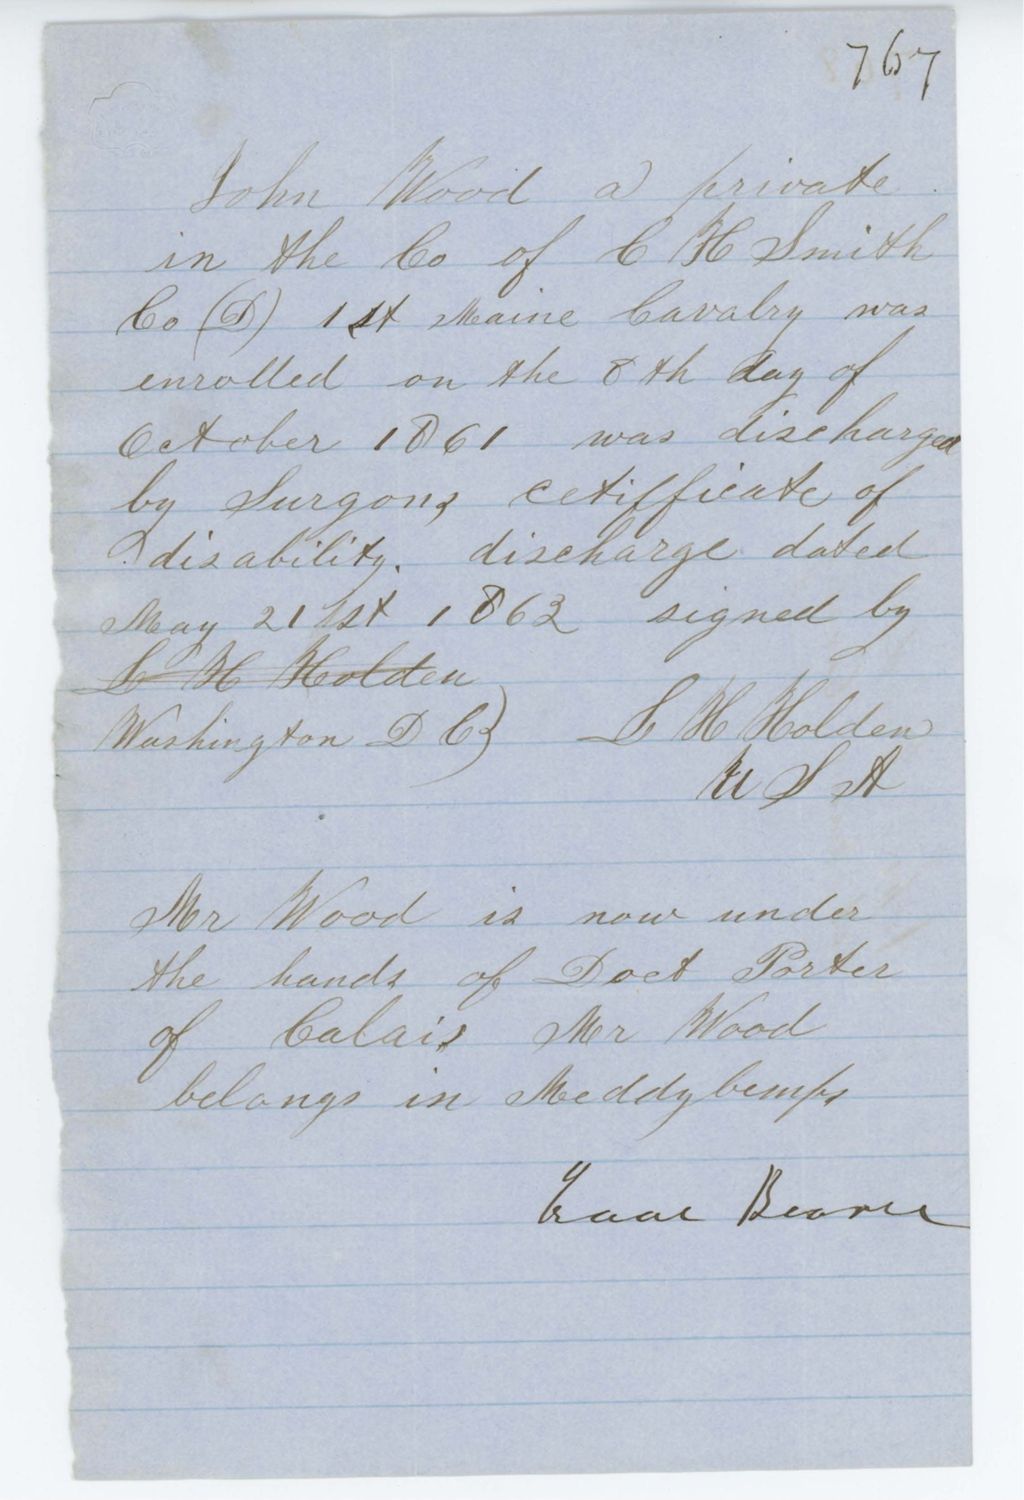 767
John Wood a private
in the Co of C H Smith
Co (D) 1st Maine Cavalry was
enrolled on the 8th day of
October 1861 was discharged
by Surgons cetifficate of
disability. discharge dated
May 21st 1862 signed by
L H Holden
Washington D C} L H Holden
U S A
Mr Wood is now under
the hands of Doct Porter
of Calais Mr Wood
belongs in Meddybemps
Isaac